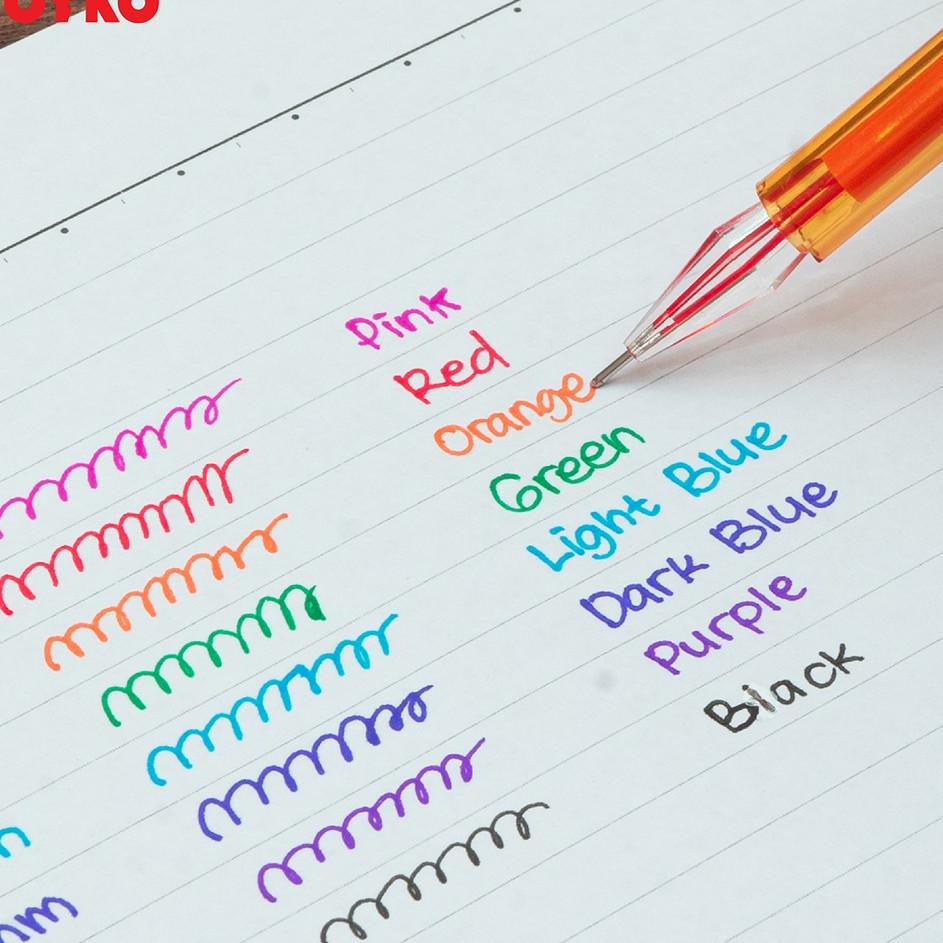 Pink
Red
Orange
Green
Light Blue
Dark Blue
Purple
Black